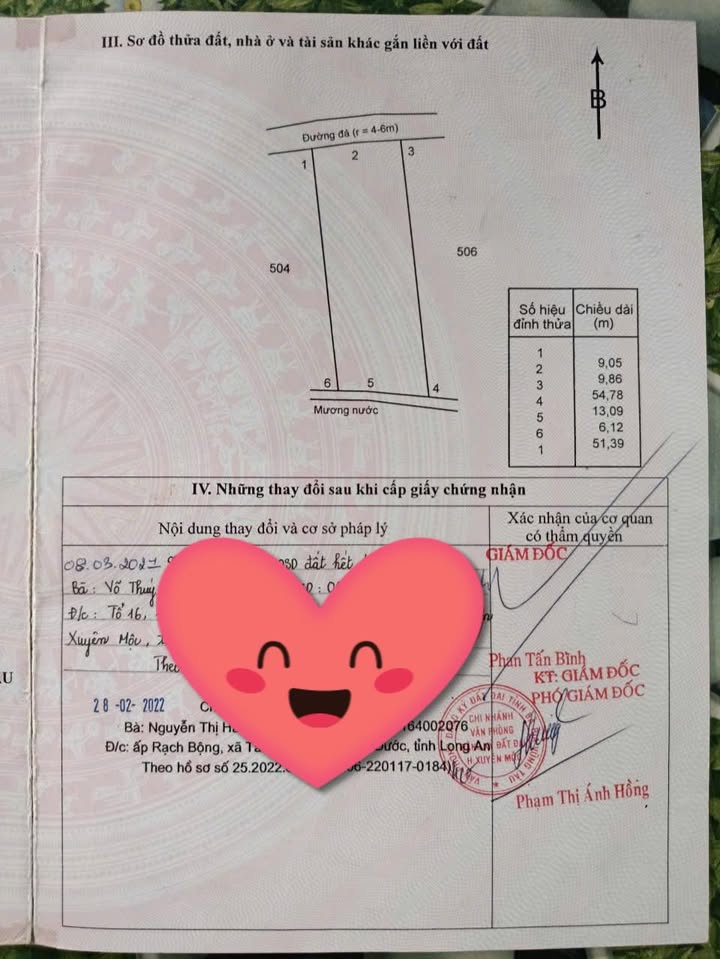 III. Sơ đồ thửa đất, nhà ở và tài sản khác gắn liền với đất
B
Đường đá (r = 4-6m)
1
2
3
504
506
6
5
4
Mương nước
Số hiệu đỉnh thửa Chiều dài (m)
1
9,05
2
9,86
3
54,78
4
13,09
5
6,12
6
51,39
1
IV. Những thay đổi sau khi cấp giấy chứng nhận
Nội dung thay đổi và cơ sở pháp lý
Xác nhận của cơ quan
có thẩm quyền
08.03.2021 đất hết
GIÁM ĐỐC
Bà: Võ Thúy
Đ/c: Tổ 16,
Xuyên Mộc,
Theo
Phan Tấn Bình
KT: GIÁM ĐỐC
PHÓ GIÁM ĐỐC
28-02-2022
Bà: Nguyễn Thị 164002076
Đ/c: ấp Rạch Bộng, xã tỉnh Long An
Theo hồ sơ số 25.2022. 06-220117-0184)
CHI NHÁNH
VĂN PHÒNG
H.XUYÊN MỘC
Phạm Thị Ánh Hồng